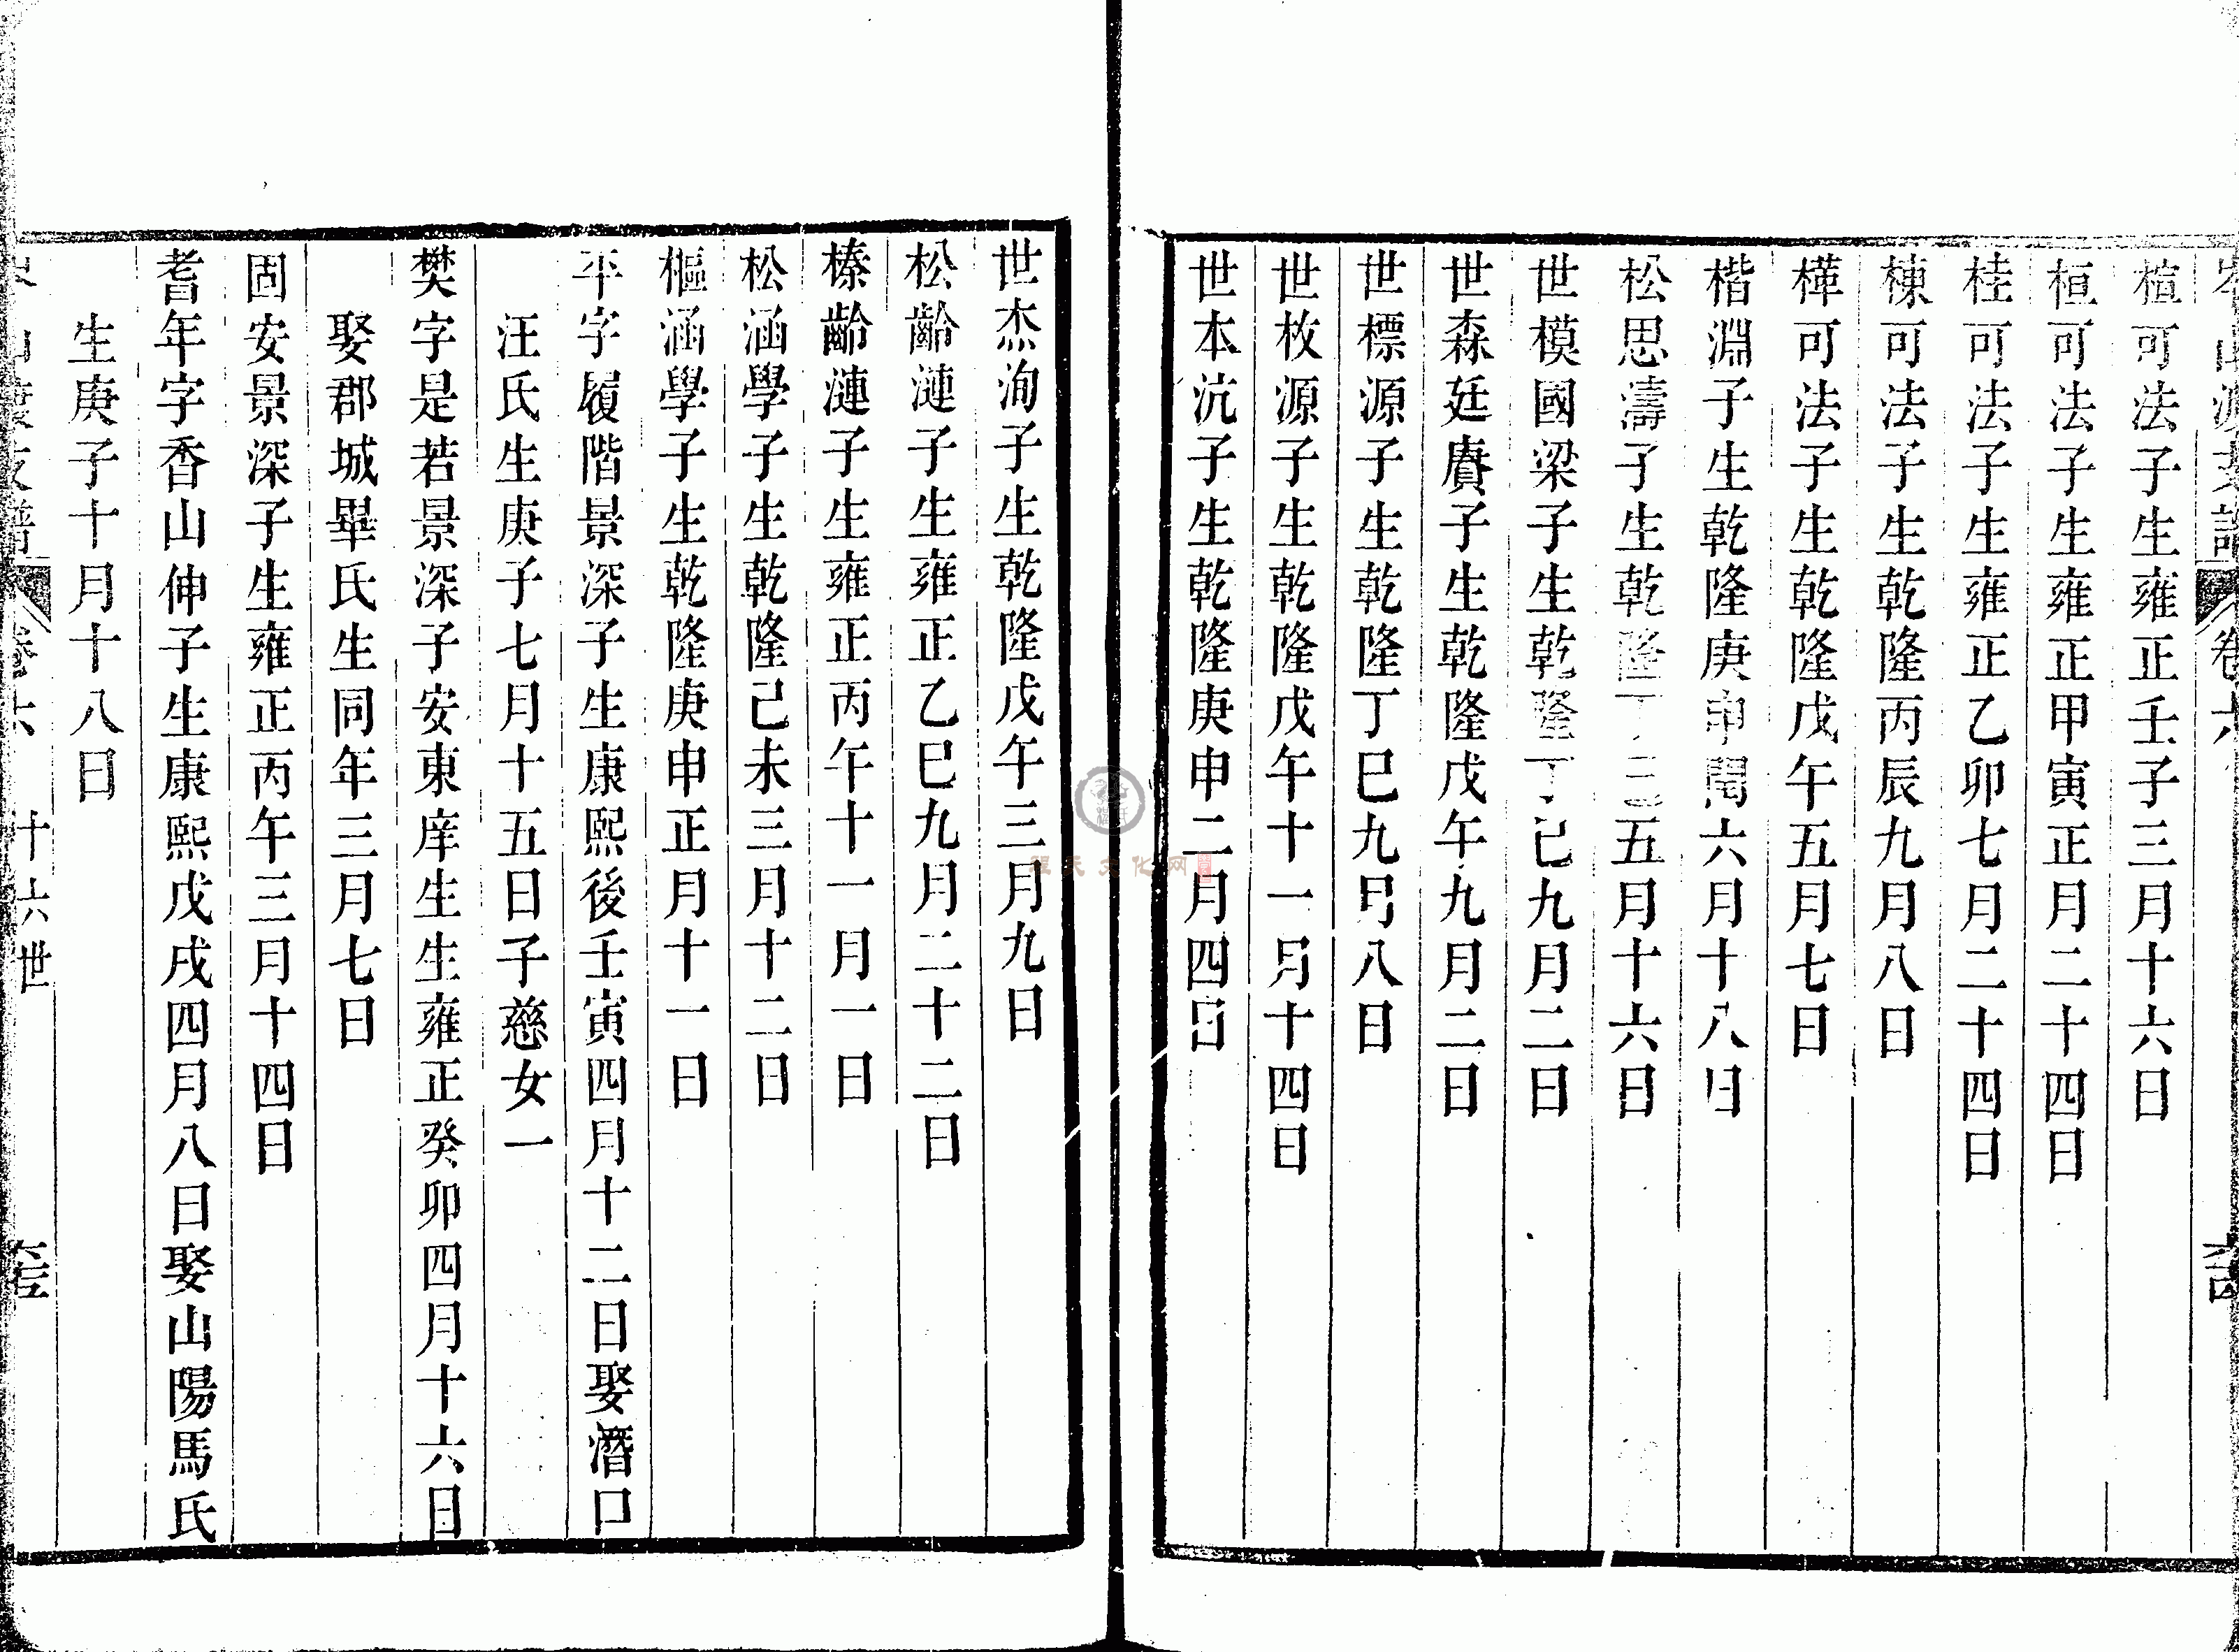 卷六
楦可法子生雍正壬子三月十六日
桓可法子生雍正甲寅正月二十四日
桂可法子生雍正乙卯七月二十四日
棟可法子生乾隆丙辰九月八日
樺可法子生乾隆戊午五月七日
楷淵子生乾隆庚申閏六月十八日
松思濤子生乾隆丁巳五月十六日
世模國梁子生乾隆丁巳九月二日
世森廷賡子生乾隆戊午九月二日
世標源子生乾隆丁巳九月八日
世枚源子生乾隆戊午十一月十四日
世本沆子生乾隆庚申二月四日
世杰洵子生乾隆戊午三月九日
松齡漣子生雍正乙巳九月二十二日
榛齡漣子生雍正丙午十一月一日
松涵學子生乾隆己未三月十二日
樞涵學子生乾隆庚申正月十一日
平字履階景深子生康熙後壬寅四月十二日娶潛口
汪氏生庚子七月十五日子慈女一
樊字是若景深子安東庠生生雍正癸卯四月十六日
娶郡城畢氏生同年三月七日
固安景深子生雍正丙午三月十四日
耆年字香山伸子生康熙戊戌四月八日娶山陽馬氏
生庚子十月十八日
卷六 十六世